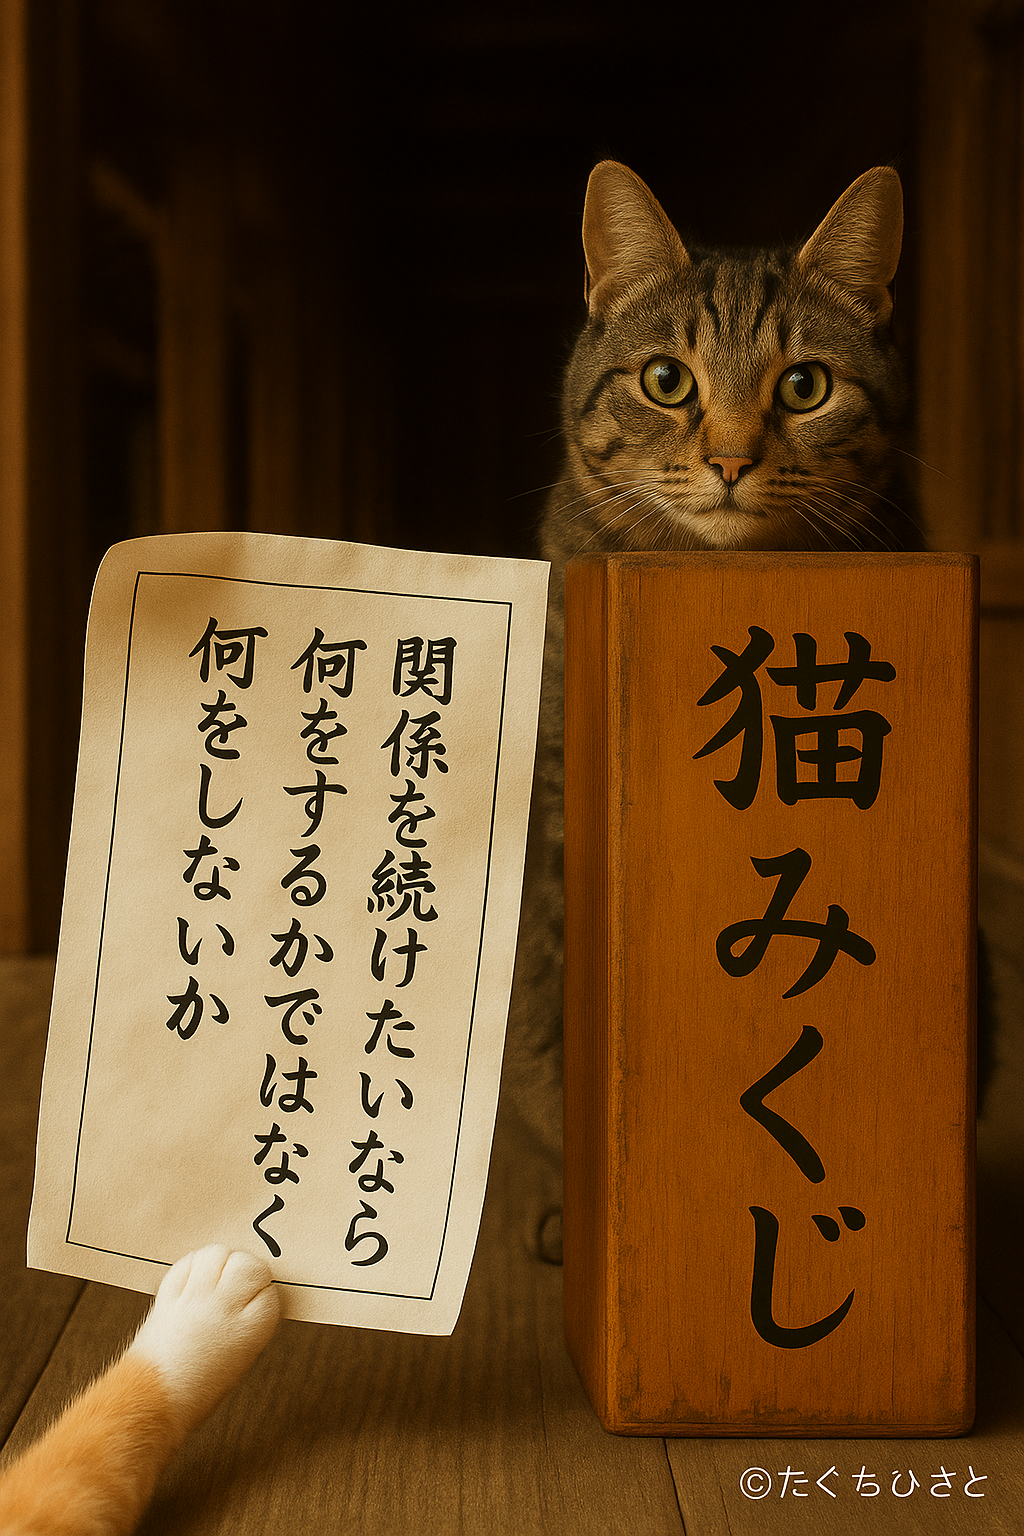 関係を続けたいなら
何をするかではなく
何をしないか
猫みくじ
©たぐちひさと